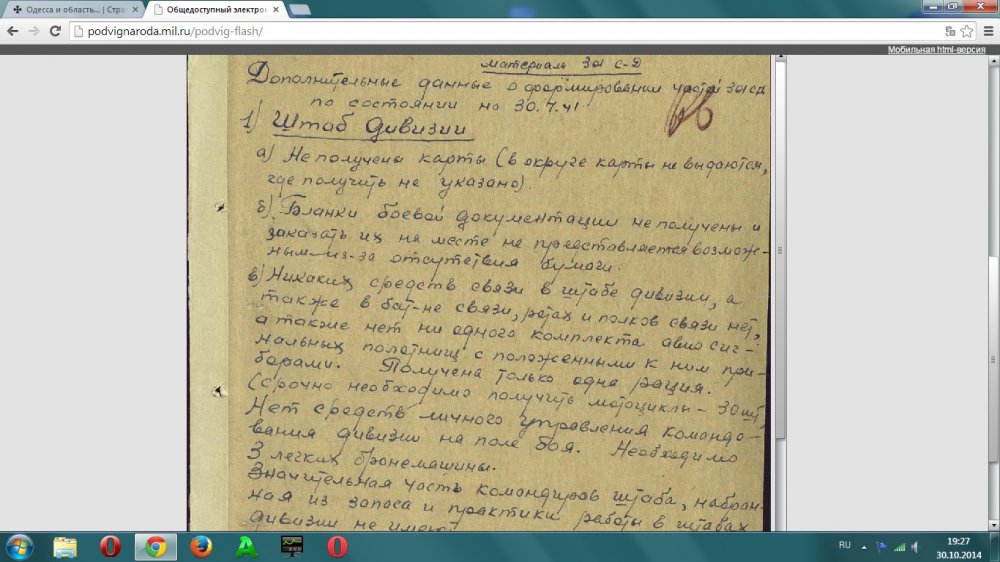 Одесса и область... | Стра
Общедоступный электрон
podvignaroda.mil.ru/podvig-flash/
Мобильная html-версия
материал 301 с-д
Дополнительные данные о формировании частей 301 сд
по состоянии на 30.7.41
1) Штаб дивизии
а) Не получены карты (в округе карты не выдаются,
где получить не указано).
б) Бланки боевой документации не получены и
заказать их на месте не представляется возмож-
ным из-за отсутствия бумаги.
в) Никаких средств связи в штабе дивизии, а
также в бат-не связи, ротах и полков связи нет,
а также нет ни одного комплекта авио сиг-
нальных полотнищ с положенными к ним при-
борами. Получена только одна рация.
(срочно необходимо получить мотоциклы - 30 шт,
Нет средств личного управления командо-
вания дивизии на поле боя. Необходимо
3 легких бронемашины.
Значительная часть командиров штаба, набран-
ная из запаса и практики работы в штабах
дивизии не имеют
RU
19:27
30.10.2014